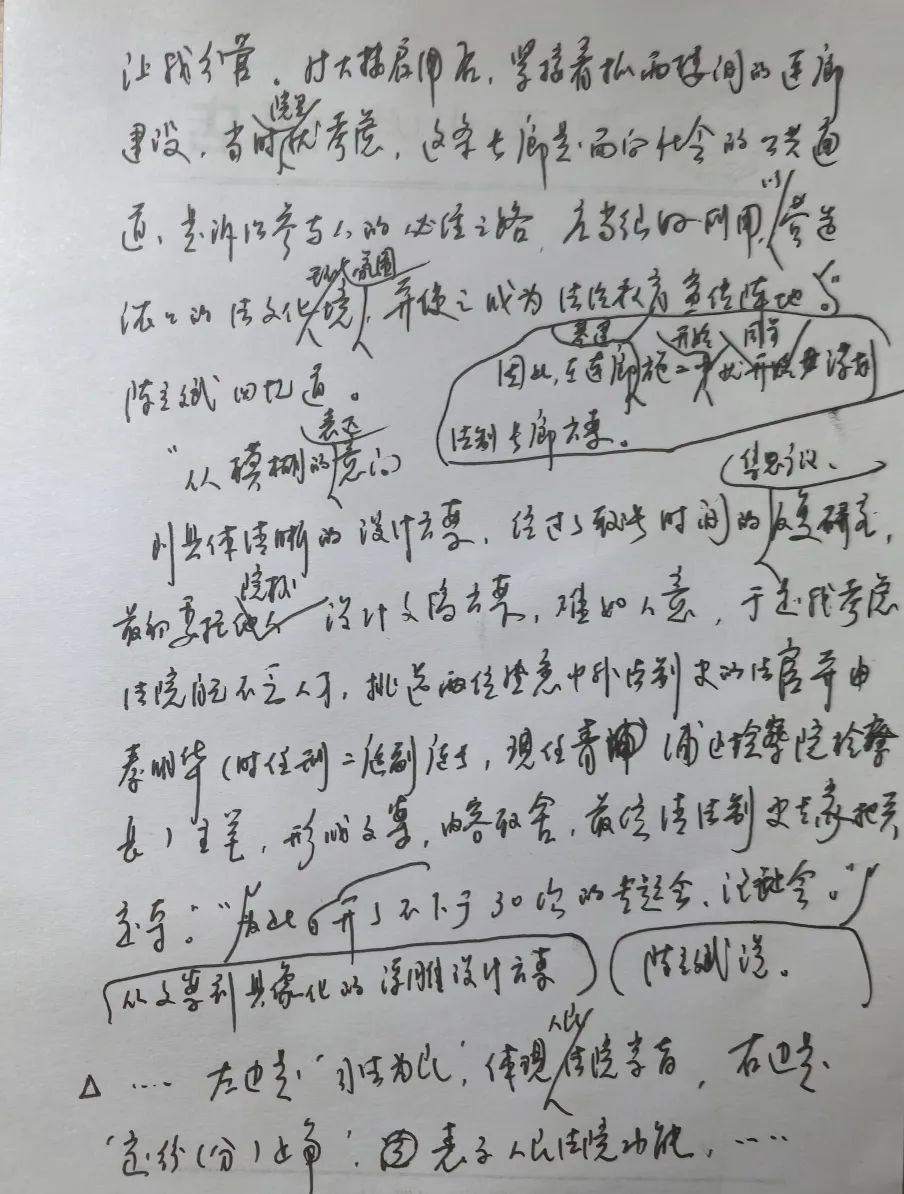 让我分管。对大楼启用后,紧接着抓两楼间的连廊
建设,当时院里就考虑,这条长廊是面向社会的公共通
道,是诉讼参与人的必经之路,应当很好利用,以营造
浓浓的法文化环境氛围,并使之成为法治教育宣传阵地。"
陈立斌回忆道。
因此,在连廊基建施工开始就同步
法制长廊方案。
"从模糊的表述意识
到具体清晰的设计方案,经过了较长时间的集思广议、反复研究,
最初委托院校设计文稿方案,难如人意,于是我考虑
法院自己不乏人才,挑选两位熟悉中外法制史的法官并由
秦明华(时任刑二庭副庭长,现任青浦区检察院检察
长)主笔,形成文案,内容取舍,最后请法制史专家把关
定夺。""为此召开了不下于30次的专题会、论证会。"
从文案到具像化的浮雕设计方案
陈立斌说。
△ …… 左边是'司法为民',体现人民法院宗旨,右边是
'定纷(分)止争',表示人民法院功能,……